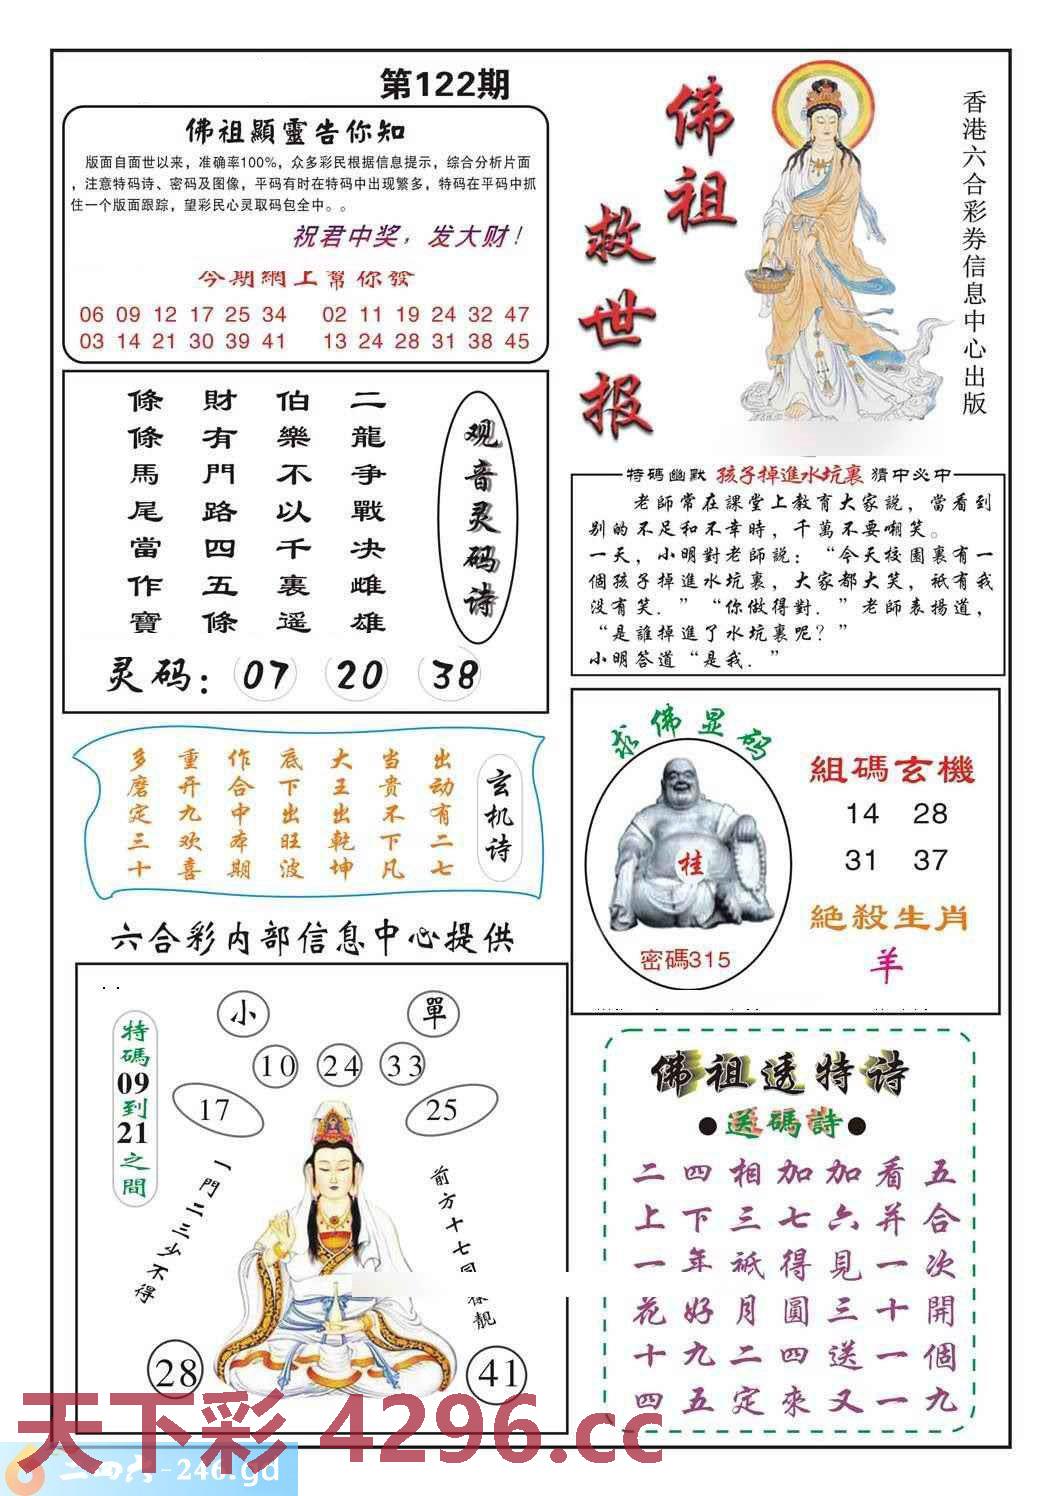 第122期
佛祖顯靈告你知
版面自面世以来，准确率100%，众多彩民根据信息提示，综合分析片面
，注意特码诗、密码及图像，平码有时在特码中出现繁多，特码在平码中抓
住一个版面跟踪，望彩民心灵取码包全中。。
祝君中奖，发大财！
今期網上幫你發
06 09 12 17 25 34 02 11 19 24 32 47
03 14 21 30 39 41 13 24 28 31 38 45
佛祖
救世报
香港六合彩券信息中心出版
观音灵码诗
二龍争戰决雌雄
伯樂不以千裏遥
財有門路四五條
條條馬尾當作寶
灵码：07 20 38
特碼幽默 孩子掉進水坑裏 猜中必中
老師常在課堂上教育大家説，當看到
别的不足和不幸時，千萬不要嘲笑。
一天，小明對老師説：“今天校園裏有一
個孩子掉進水坑裏，大家都大笑，衹有我
没有笑．”“你做得對．”老師表揚道，
“是誰掉進了水坑裏呢？”
小明答道“是我．”
玄机诗
出动有二七
当贵不下凡
大王出乾坤
底下出旺波
作合中本期
重开九欢喜
多磨定三十
求佛显码
桂
密碼315
組碼玄機
14 28
31 37
絕殺生肖
羊
六合彩内部信息中心提供
小 單
10 24 33
17 25
特碼09到21之間
一門二三少不得
前方十七
靚
28 41
佛祖透特诗
●送碼詩●
二四相加加看五
上下三七六并合
一年衹得見一次
花好月圓三十開
十九二四送一個
四五定來又一九
天下彩 4296.cc
二四六-246.gd